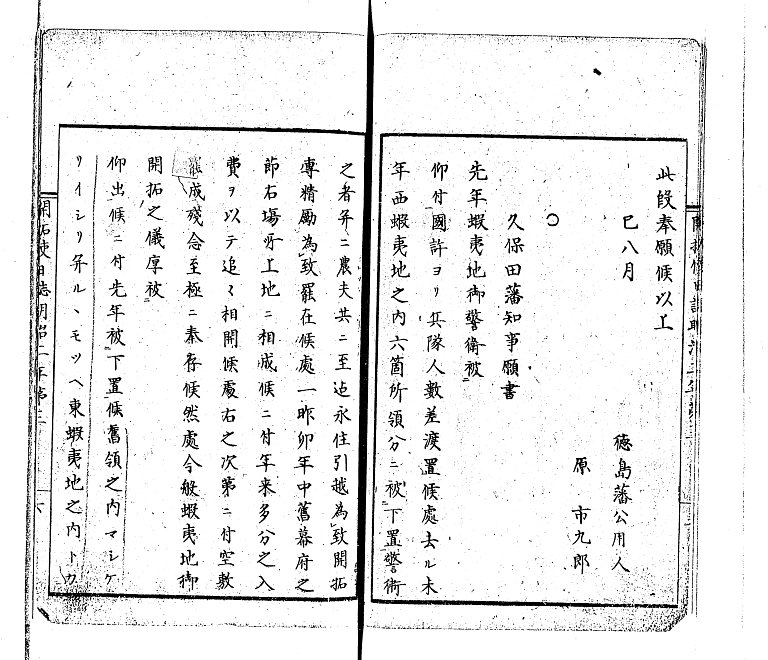 此段奉願候以上
巳八月
徳島藩公用人
原 市九郎
○
久保田藩知事願書
先年蝦夷地御警衛被
仰付國許ヨリ兵隊人數差渡置候處去ル未
年西蝦夷地之内六箇所領分ニ被下置警衛
之者并ニ農夫共ニ至迠永住引越為致開拓
專精勵為致罷在候處一昨卯年中舊幕府之
節右場所上地ニ相成候ニ付年来多分之入
費ヲ以テ追々相開候處右之次第ニ付空敷
罷成殘念至極ニ奉存候然處今般蝦夷地御
開拓之儀厚被
仰出候ニ付先年被下置候舊領之内マシケ
リイシリ并ルヽモツヘ東蝦夷地之内トカ
開拓使日誌明治二年第二
六